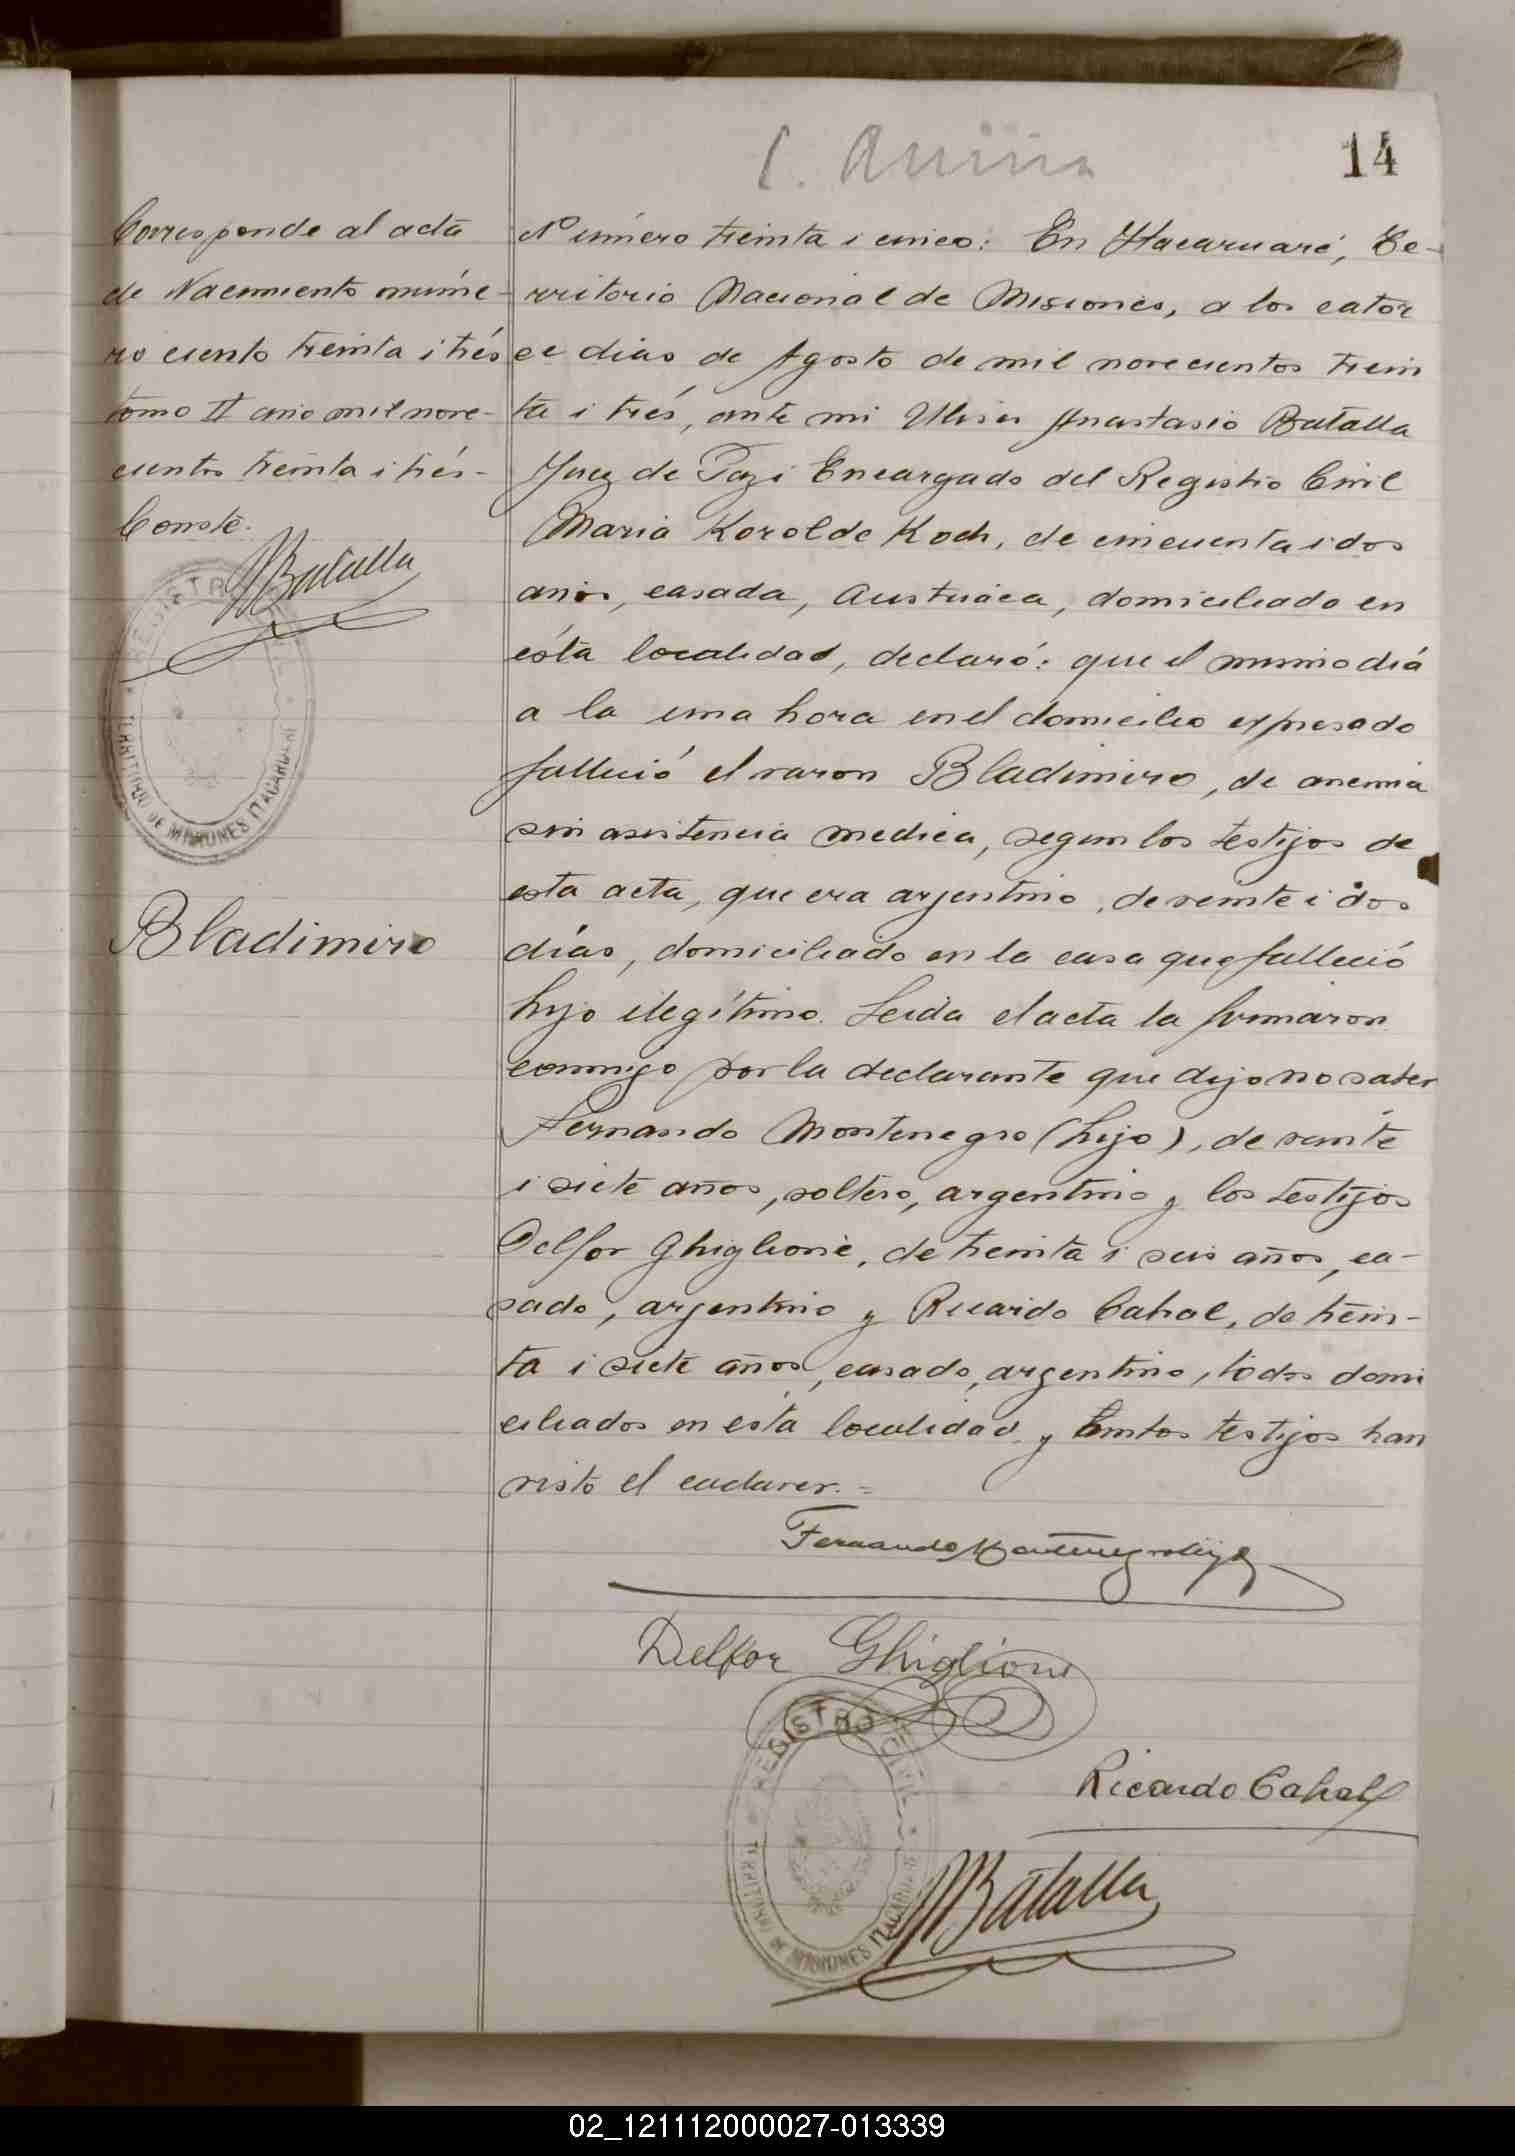 14
Corresponde al acta
de Nacimiento núme-
ro ciento treinta i trés
tomo II año mil nove-
cientos treinta i trés-
Conste.
Batalla
REGISTRO CIVIL
TERRITORIO DE MISIONES ITACARUARÉ
Bladimiro
Número treinta i cinco: En Itacaruaré, Te-
rritorio Nacional de Misiones, a los cator
ce dias de Agosto de mil novecientos trein
ta i trés, ante mi Ulises Anastasio Batalla
Juez de Paz i Encargado del Registro Civil
Maria Korol de Koch, de cincuenta i dos
años, casada, Austriaca, domiciliado en
ésta localidad, declaró: que el mismo diá
a la una hora en el domicilio expresado
falleció el varon Bladimiro, de anemia
sin asistencia medica, segun los testijos de
esta acta, que era argentino, de veinte i dos
días, domiciliado en la casa que falleció
hijo ilegítimo. Leida el acta la firmaron
conmigo por la declarante que dijo no saber
Fernando Montenegro (hijo), de veinte
i siete años, soltero, argentino y los testijos
Delfor Ghiglione, de treinta i seis años, ca-
sado, argentino y Ricardo Cahal, de trein-
ta i siete años, casado, argentino, todos domi
ciliados en esta localidad y ámbos testijos han
visto el cadaver. =
Fernando Montenegro hijo
Delfor Ghiglione
REGISTRO CIVIL
TERRITORIO DE MISIONES ITACARUARÉ
Ricardo Cahal
Batalla
02_121112000027-013339